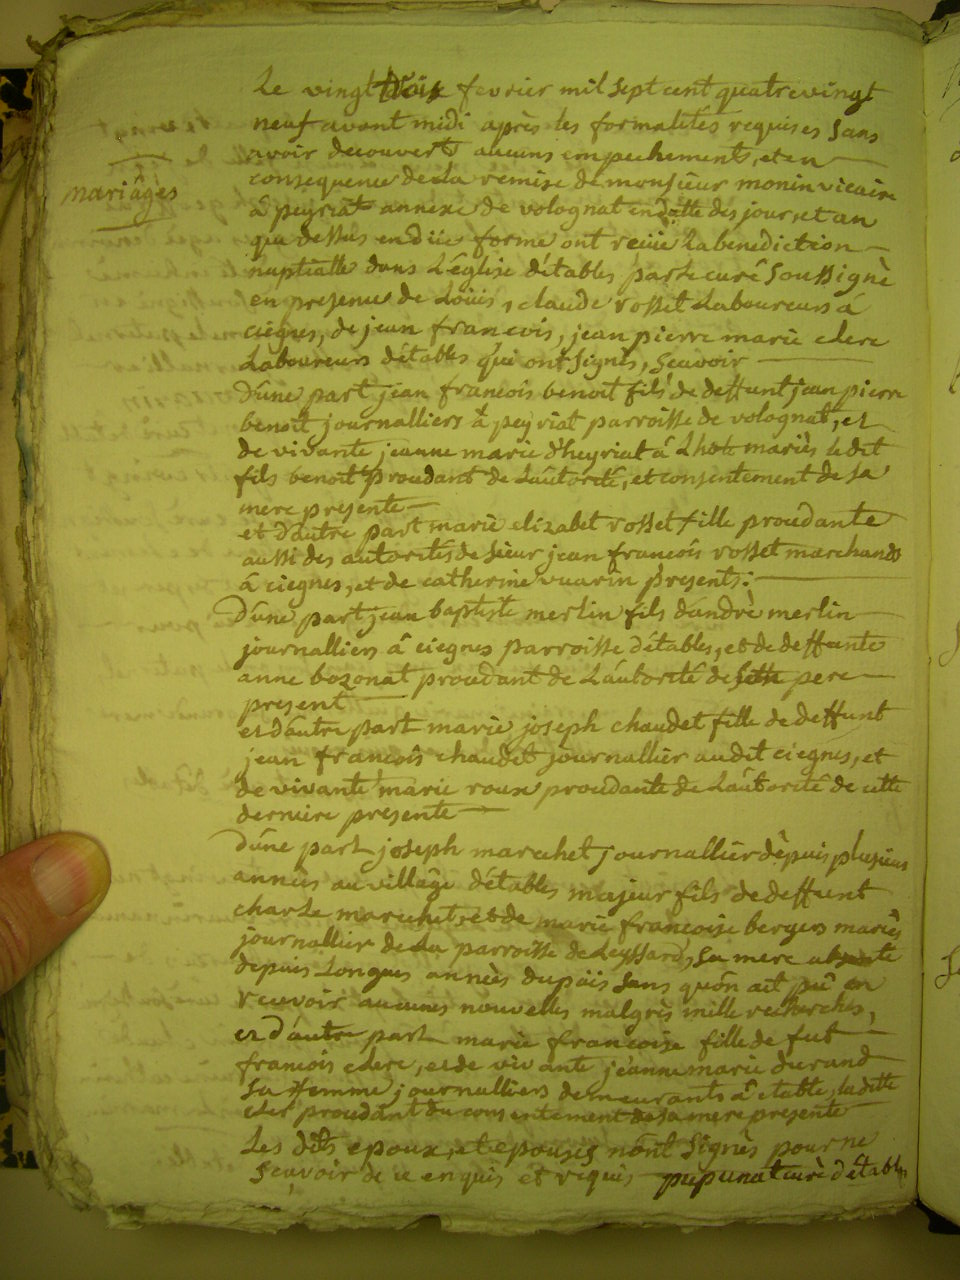 Le vingt trois fevrier mil sept cent quatre vingt
neuf avant midi après les formalités requises sans
avoir decouvert aucuns empechement, et en
consequence de la remise de monsieur monin vicaire
mariâges
â peyriat annexe de volognat en datte des jour, et an
que dessus en düe forme ont reçüe La benediction
nuptialle dans L'église d'étables par Le curé Soussigné
en presence de Loüis, claude rosset Laboureurs á
ciegnes, de jean francois, jean pierre marie clerc
Laboureurs d'étables qui ont signés, sçavoir
D'une part jean francois benoit fils de deffunt jean pierre
benoit journalliers à peyriat parroisse de volognat, et
de vivante jeanne marie d'heyriat â Lhott mariés le dit
fils benoit procedant de L'autorité, et consentement de sa
mere presente
et d'autre part marie elizabet rosset fille procedante
aussi des autorités de sieur jean francois rosset marchands
á ciegnes, et de catherine vuarin presents:
D'une part jean baptiste merlin fils d'andrè merlin
journalliers â ciegnes parroisse d'étables, et de deffunte
anne bozonat procedant de L'autorité de pere
present
et d'autre part marie joseph chaudet fille de deffunt
jean francois chaudet journallier au dit ciegnes, et
de vivante marie roux procedante de L'autorité de cette
derniere presente
D'une part joseph marechet journallier dèpuis plusieurs
années au village d'étables majeur fils de deffunt
charle marechet, et de marie françoise bergers mariés
journallier de La parroisse de Leyssard, sa mere absente
depuis Longues années du païs sans qu'on ait pû en
recevoir aucunes nouvelles malgrés mille recherches,
et d'autre part marie francoise fille de fut
francois clerc, et de vivante jeanne marie durand
sa ffemme journalliers demeurants â etable, la ditte
clerc procedant du consentement de sa mere presente
Les dits epoux, et epouses n'ont signès pour ne
sçavoir de ce enquis et requis pupunat curè d'étables